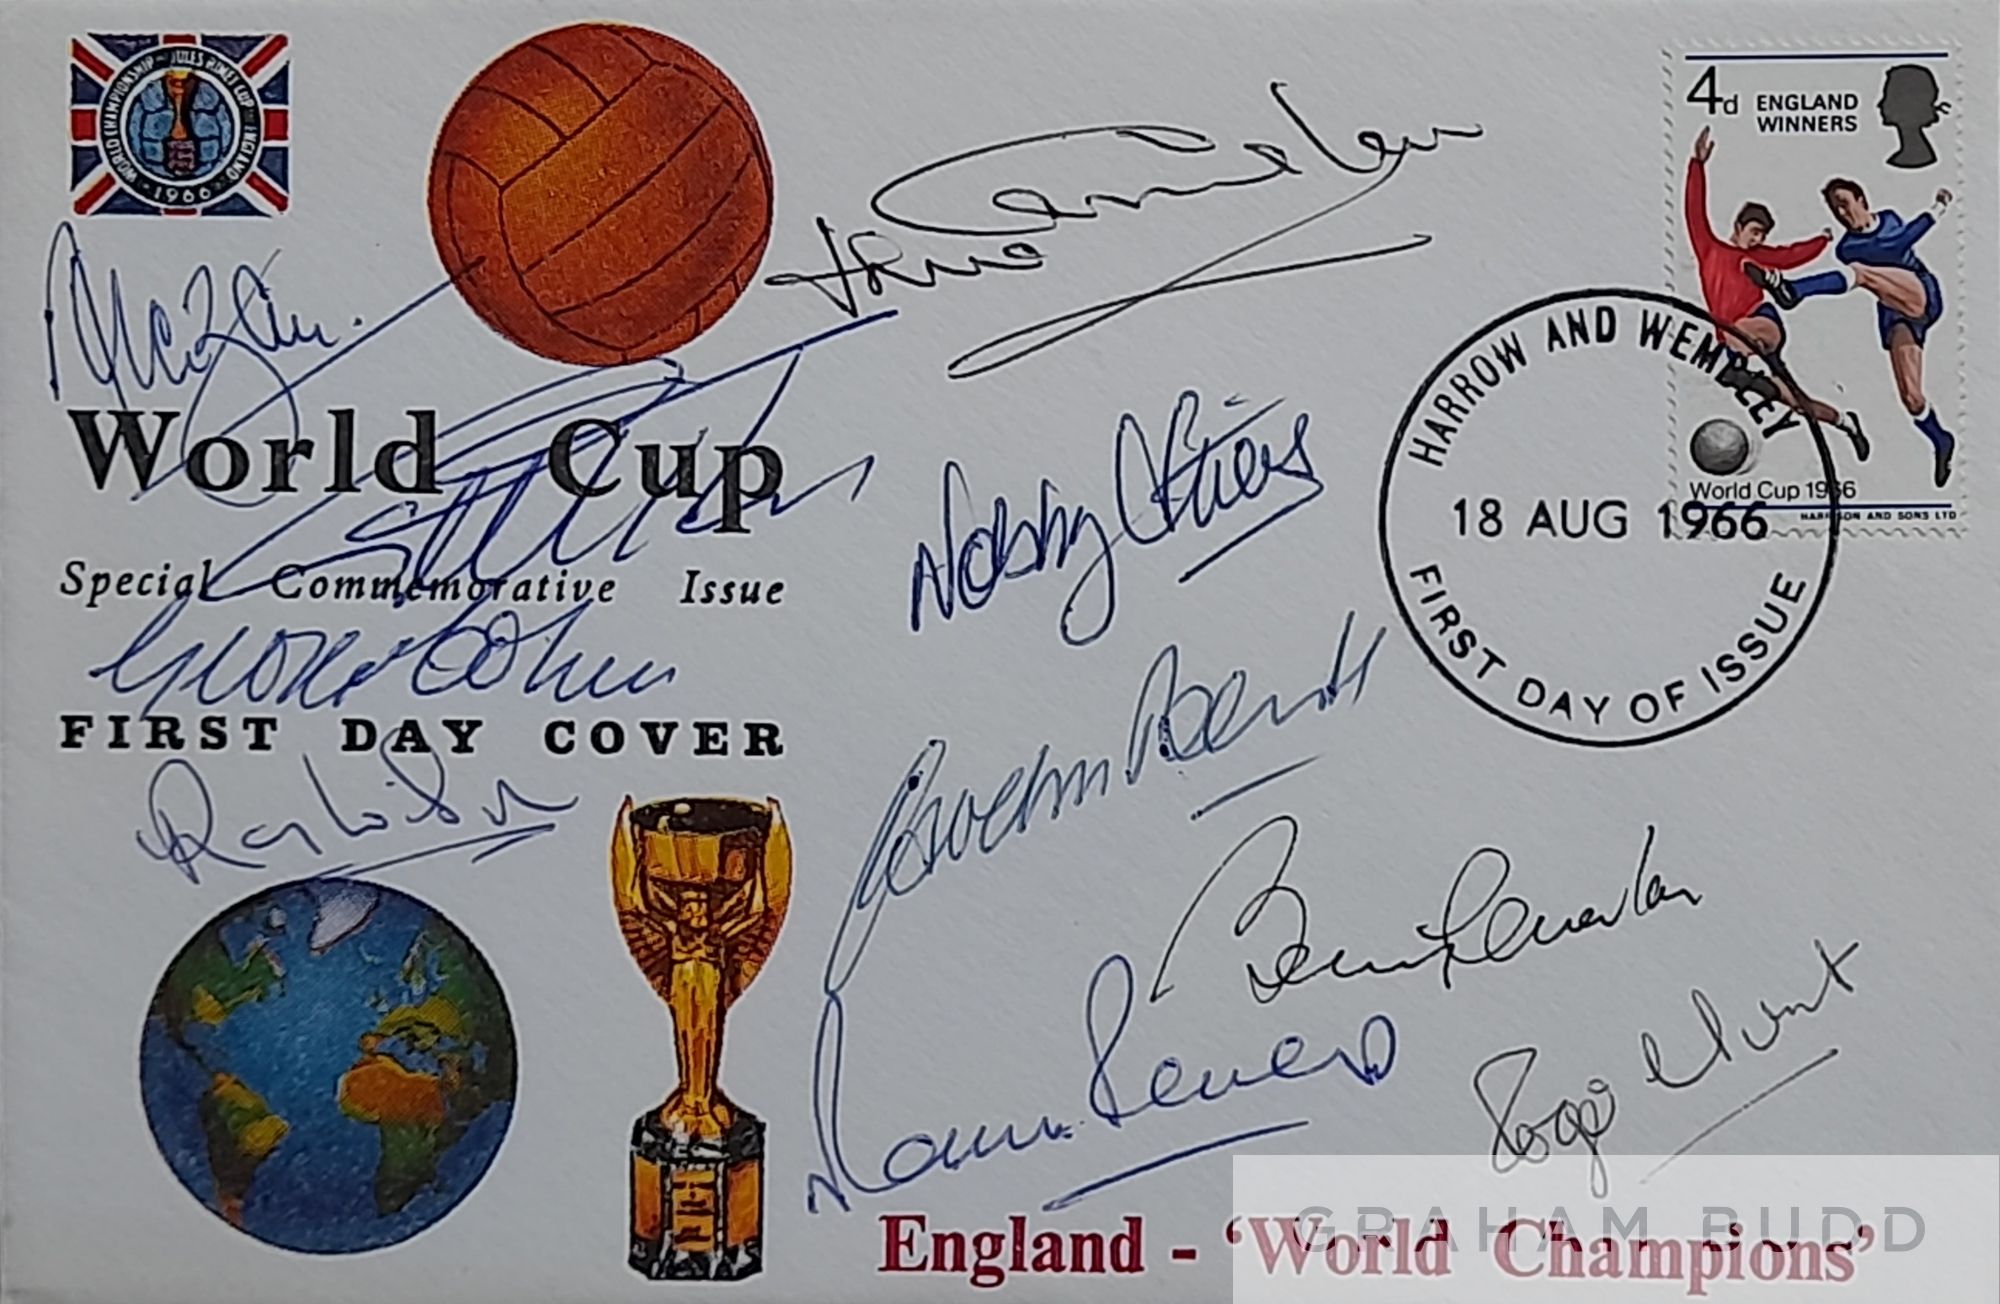 WORLD CHAMPIONSHIP - JULES RIMET CUP - ENGLAND
1966
4d ENGLAND
WINNERS
World Cup 1966
HARRISON AND SONS LTD
HARROW AND WEMBLEY
18 AUG 1966
FIRST DAY OF ISSUE
World Cup
Special Commemorative Issue
George Cohen
FIRST DAY COVER
Ray Wilson
Nobby Stiles
Gordon Banks
Roger Hunt
England - 'World Champions'
GRAHAM BUDD